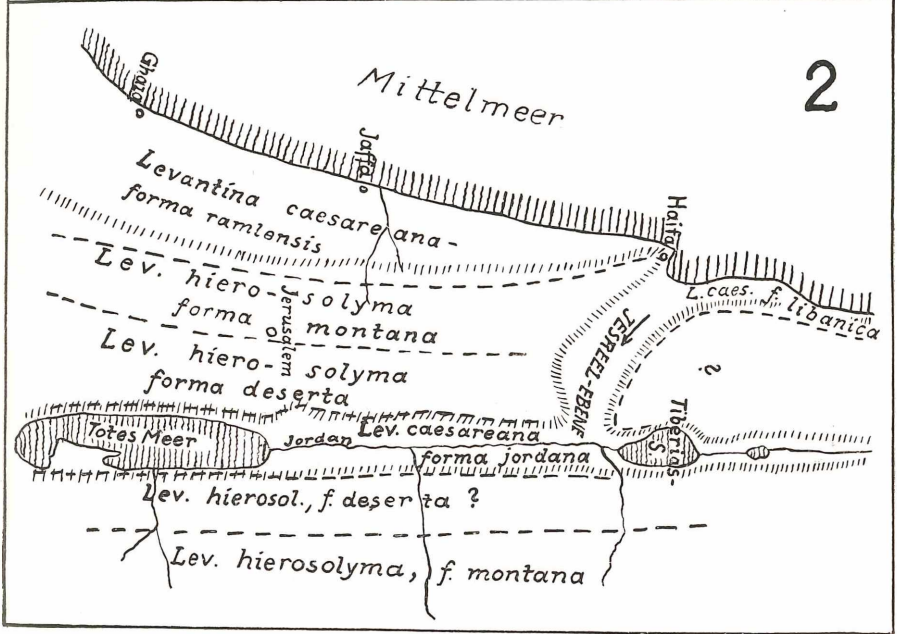 2
Mittelmeer
Ghaza
Jaffa
Haifa
Levantina caesareana-
forma ramlensis
L. caes. f. libanica
Lev. hiero-solyma
forma montana
Jerusalem
JESREEL-EBENE
?
Lev. hiero-solyma
forma deserta
Totes Meer
Jordan
Lev. caesareana
forma jordana
Tiberias-
S.
Lev. hierosol., f. deserta ?
Lev. hierosolyma, f. montana